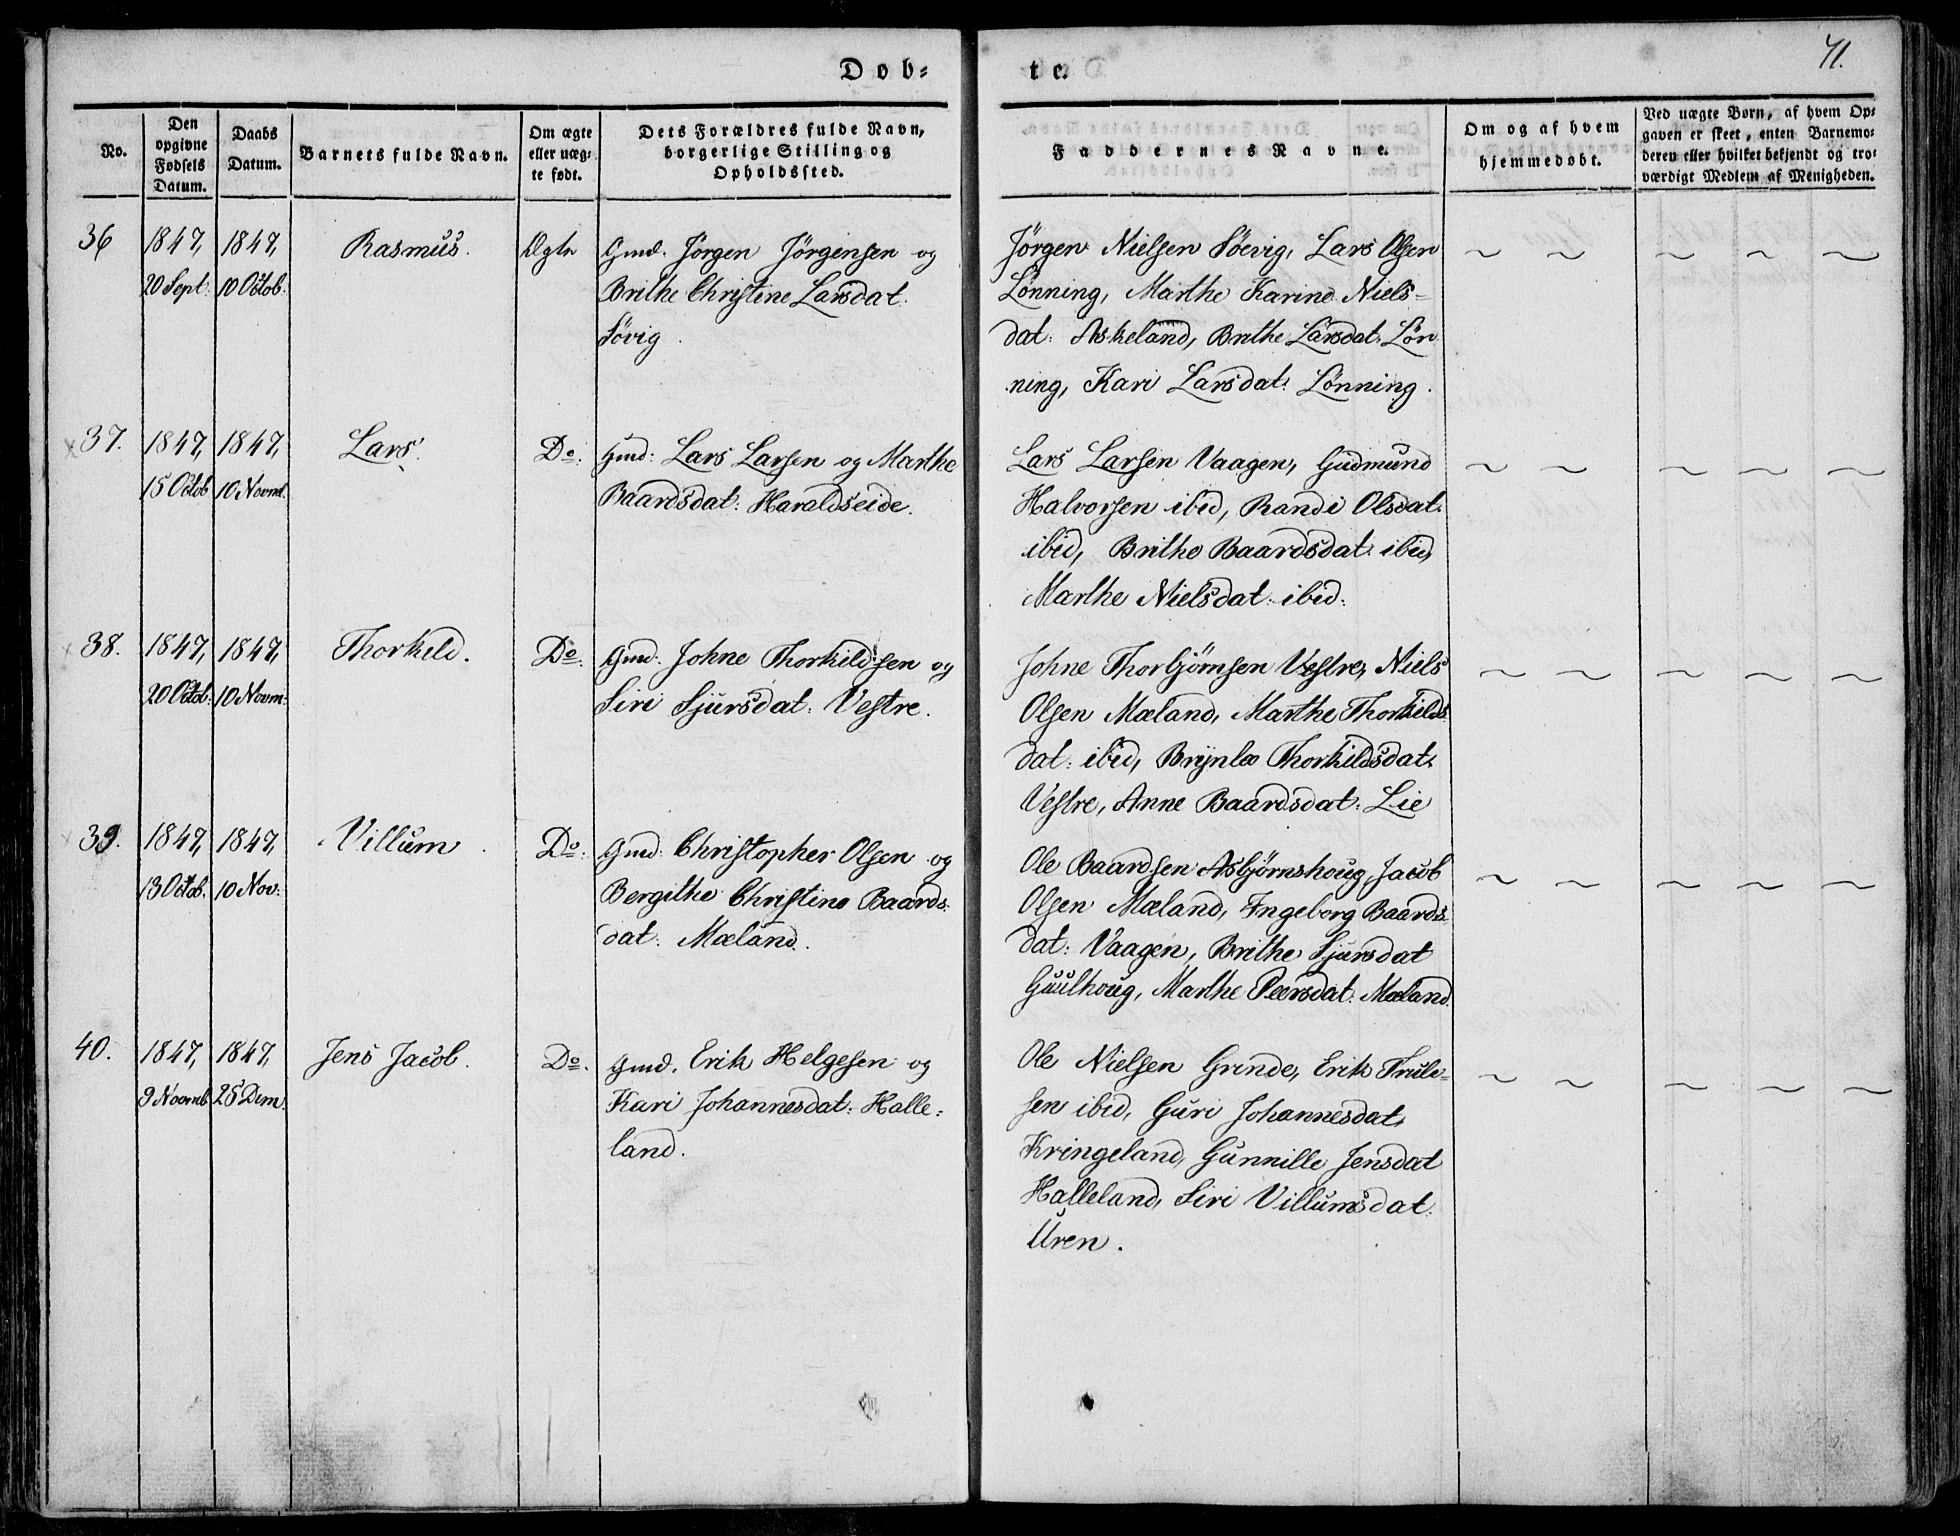 Døb=
te.
71.
No.
Den
opgivne
Fødsels
Datum.
Daabs
Datum.
Barnets fulde Navn.
Om ægte
eller uæg-
te født.
Dets Forældres fulde Navn,
borgerlige Stilling og
Opholdssted.
Faddernes Navne.
Om og af hvem
hjemmedøbt.
Ved uægte Børn, af hvem Op-
gaven er skeet, enten Barnemo-
deren eller hvilket bekjendt og tro-
værdigt Medlem af Menigheden.
36
1847,
20 Sept.
1847,
10 Octob.
Rasmus.
Ægte
Gmd. Jörgen Jörgensen og
Brithe Christine Larsdat.
Søvig.
Jørgen Nielsen Søevig, Lars Olsen
Lønning, Marthe Karine Niels-
dat: Askeland, Brithe Larsdat: Løn
ning, Kari Larsdat: Lønning.
37.
1847,
15 Octob
1847,
10 Novmb.
Lars.
Do.
Gmd: Lars Larsen og Marthe
Baardsdat: Haraldseide.
Lars Larsen Vaagen, Gudmund
Halvorsen ibid, Randi Olsdat.
ibid, Brithe Baardsdat: ibid,
Marthe Nielsdat: ibid:
38.
1847,
20 Octob:
1847,
10 Novm:
Thorkeld.
Do:
Gmd: Johne Thorkildsen og
Siri Sjursdat: Vestre.
Johne Thorbjörnsen Vestre, Niels
Olsen Mæland, Marthe Thorkilds
dat: ibid, Brynlo Thorkildsdat:
Vestre, Anne Baardsdat: Lie
39.
1847,
13 Octob.
1847,
10 Nov:
Villum.
Do:
Gmd: Christopher Olsen og
Bergithe Christine Baards-
dat: Mæland.
Ole Baardsen Asbjørnshoug, Jacob
Olsen Mæland, Ingeborg Baards-
dat: Vaagen, Brithe Sjursdat
Guulhoug, Marthe Peersdat: Mæland.
40.
1847,
9 Novmb
1847,
25 Dem.
Jens Jacob.
Do.
Gmd. Erik Helgesen og
Kari Johannesdat: Halle-
land.
Ole Nielsen Grinde, Erik Truls-
sen ibid, Guri Johannesdat,
Kringeland, Gunnille Jensdat
Halleland, Siri Villumsdat:
Uren.